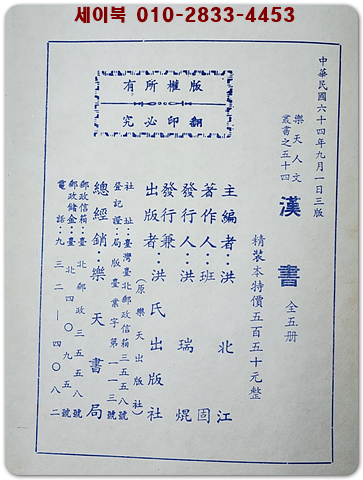 세이북 010-2833-4453
中華民國六十四年九月一日三版
樂天人文
叢書之五十四
漢書 全五册
精裝本特價五百五十元整
主編者:洪北江
著作人:班固
發行人:洪瑞焜
發行兼
出版者:洪氏出版社
(原樂天出版社)
社址:臺灣臺北郵政信箱三五五八號
登記證:局版臺業字第一一三號
總經銷:樂天書局
郵政信箱:臺北郵政三五五八號
郵政儲金:臺北四〇九五號
電話:九三二—四〇八二
版權所有
翻印必究